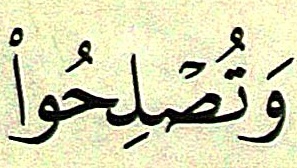 وَتُصۡلِحُواْ